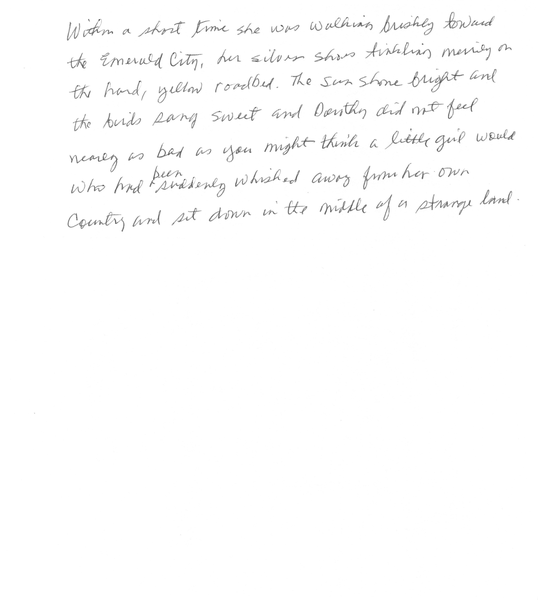 Within a short time she was walking briskly toward
the Emerald City, her silver shoes tinkling merrily on
the hard, yellow roadbed. The sun shone bright and
the birds sang sweet and Dorothy did not feel
nearly as bad as you might think a little girl would
who had been suddenly whisked away from her own
Country and sit down in the middle of a strange land.